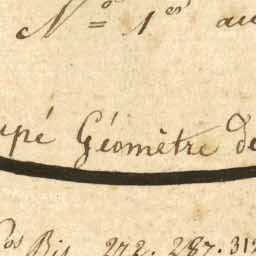 N° 1er au
upé Géomètre de
Nos Bis 272. 287. 312